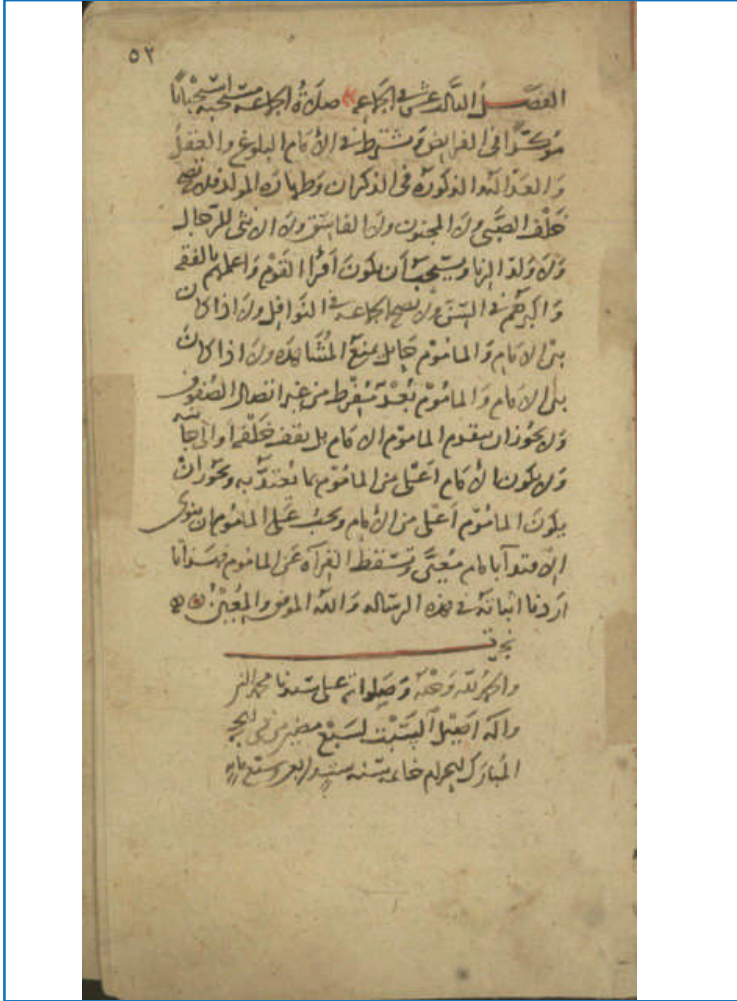 ٥٢
الفصل الثالث عشر في الجماعة صلاة الجماعة مستحبة استحبابا
مؤكدا في الفرايض ويشترط في الامام البلوغ والعقل
والعدالة والذكورة في الذكران وطهارة المولد فلا تصح
خلف الصبي ولا المجنون ولا الفاسق ولا الانثى للرجال
ولا ولد الزنا ويستحب أن يكون أقرأ القوم واعلمهم بالفقه
واكبرهم في السن ولا تصح الجماعة في النوافل ولا اذا كان
بين الامام والماموم حايل يمنع المشاهدة ولا اذا كان
بين الامام والماموم بعد مفرط من غير اتصال الصفوف
ولا يجوز ان يتقدم الماموم الامام بل يقف خلفه أو الى جانبه
ولا يكون الامام أعلى من الماموم بما يعتد به ويجوز ان
يكون الماموم أعلى من الامام ويجب على الماموم ان ينوي
الاقتدآ بامام معين وتسقط القرآة عن الماموم فهذا ما
اردنا اثباته في هذه الرسالة والله الموفق والمعين
والحمد لله وحده وصلواته على سيدنا محمد النبي
وآله السبت لسبع مضين من
المبارك سنة